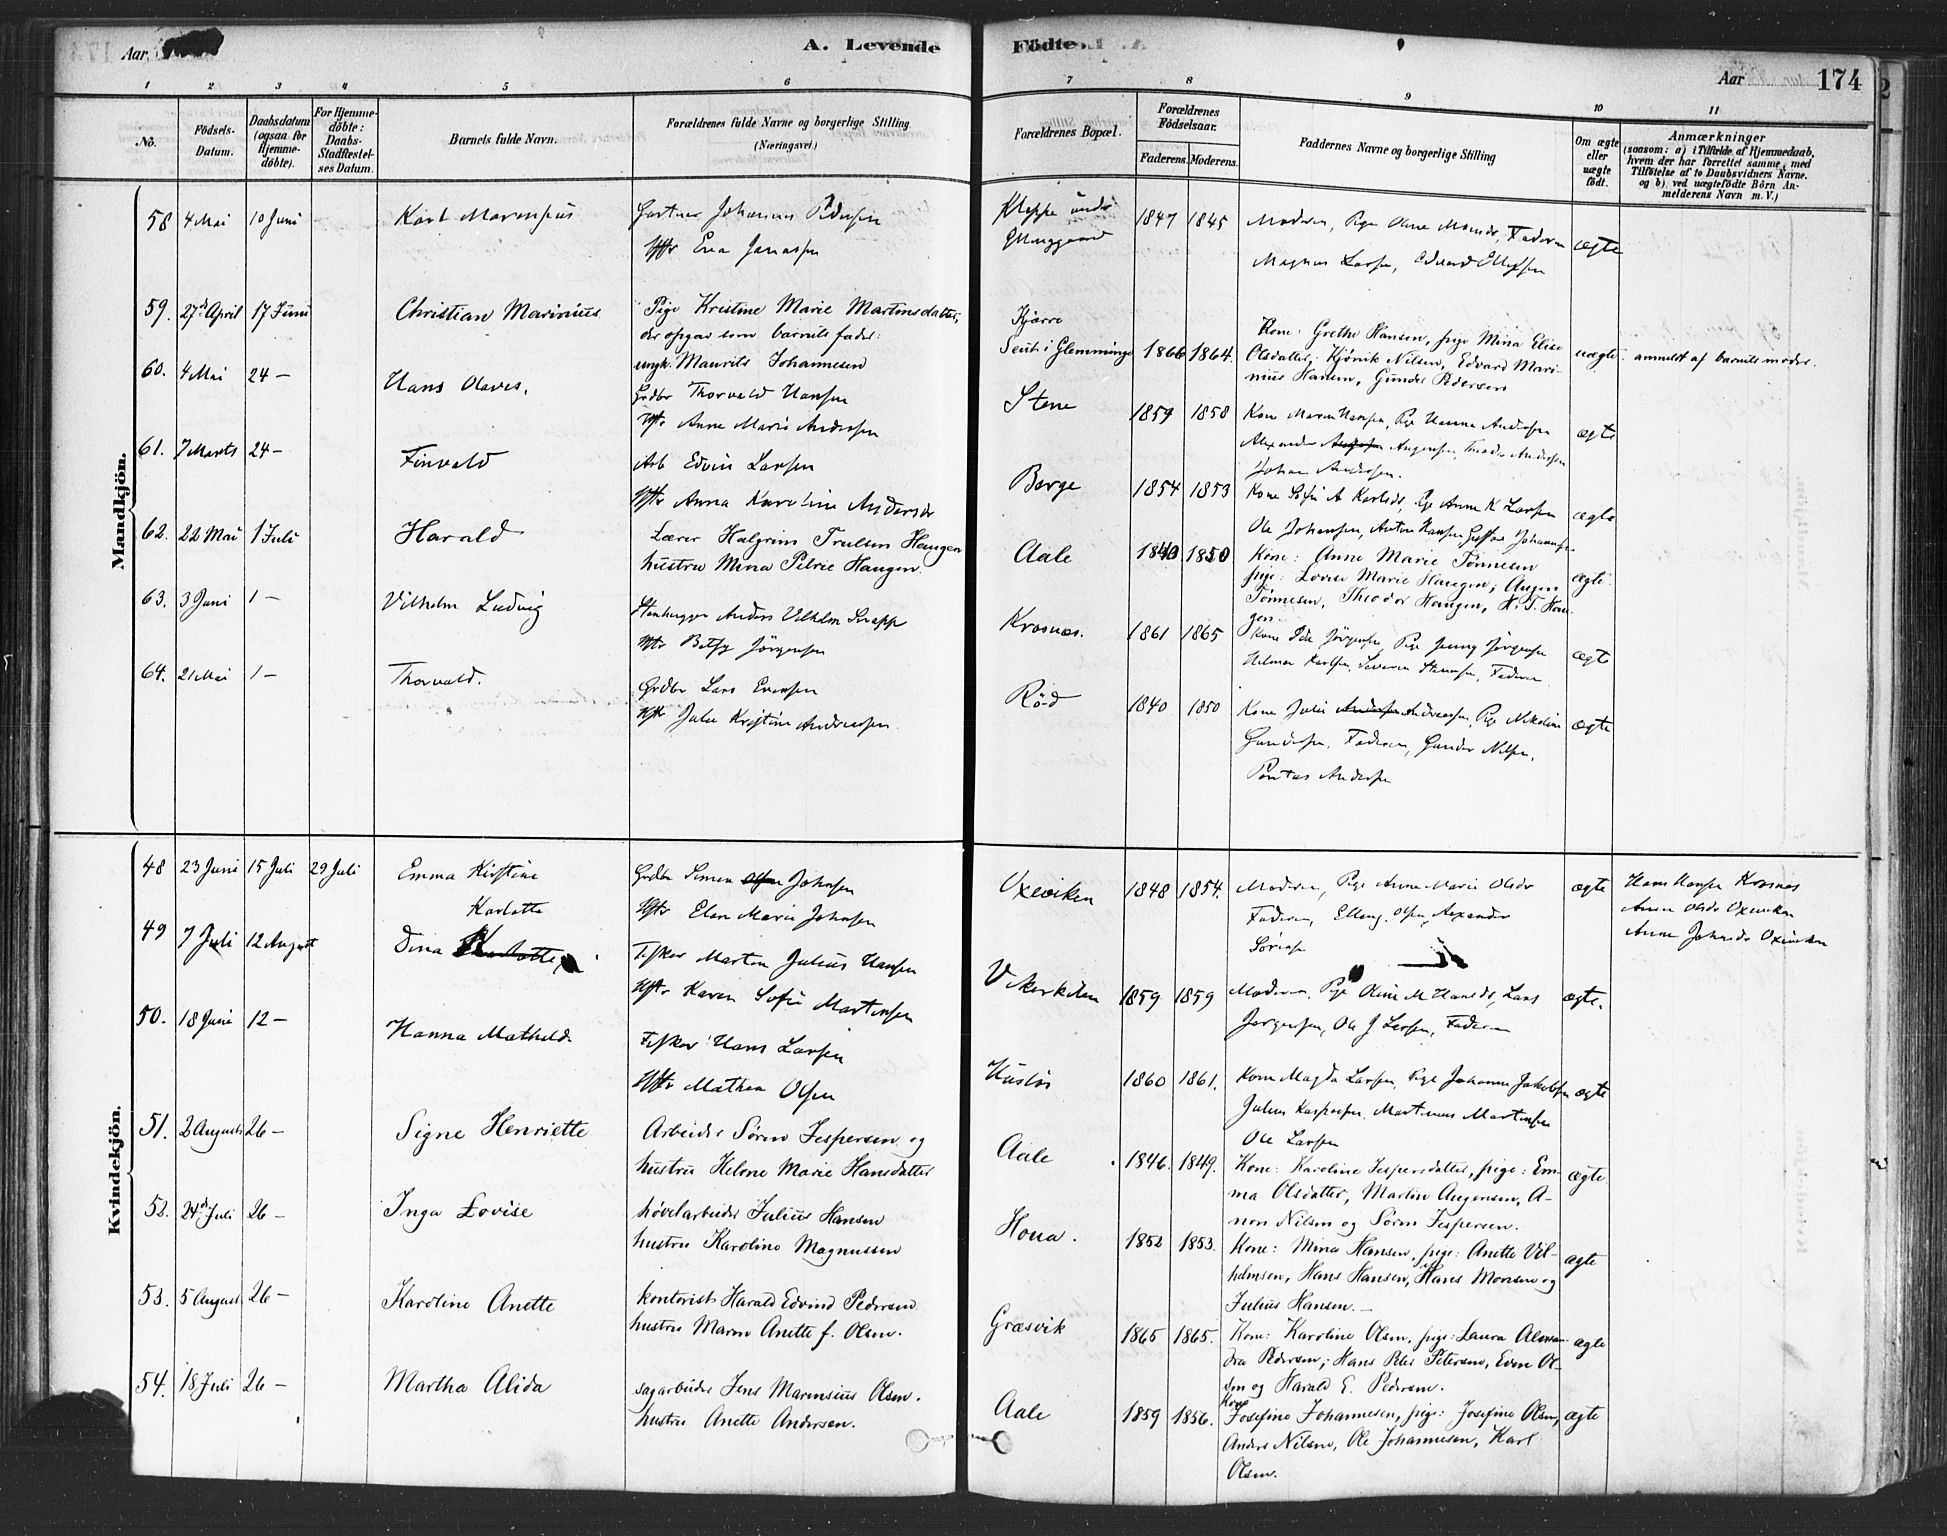 Aar
A. Levende
Födte.
Aar
174
1 2 3 4 5 6 7 8 9 10 11
No.
Födsels-Datum.
Daabsdatum (ogsaa for Hjemme-döbte).
For Hjemme-döbte: Daabs-Stadfæstel-ses Datum.
Barnets fulde Navn.
Forældrenes fulde Navne og borgerlige Stilling.
(Næringsvei.)
Forældrenes Bopæl.
Forældrenes Födselsaar.
Faderens. Moderens.
Faddernes Navne og borgerlige Stilling
Om ægte eller uægte födt.
Anmærkninger
(saasom: a) i Tilfælde af Hjemmedaab,
hvem der har forrettet samme, med
Tilföielse af to Daabsvidners Navne.
og b) ved uægtefödte Börn An-
melderens Navn m. V.)
Mandkjön.
58 4 Mai 10 Juni Karl Gartner Johannes Pedersen Kleppe under 1847 1845 Moderen, Pige Anne Fadderen ægte
Hstr Eva Jonassen Magnus Larsen, Edvard
59. 27de April 17 Juni Christian Marinius Pige Kristine Marie Martinsdatter, Kjærre
der opgav som barnets fader: Kone: Grethe Hansen, pige Mina Elise
ungk. Maurits Johannesen Seut i Glemminge 1866 1864. Olsdatter, Kjönik Nilsen, Edvard Mari- uægte anmeldt af barnets moder.
nius Hansen, Gunder Pedersen
60. 4 Mai 24 — Hans Olaves. Grdbr Thorvald Hansen Stene 1859 1858 Kone Maren Hansen, Pige Hanna Andersen ægte
Hstr Anne Marie Andersen Alexander Augensen, Theodor Andersen
Johan Andersen.
61. 7 Marts 24 — Finvald Arb Edvin Larsen Borge 1854 1853 Kone Sofie A Karlsd, Pige Anne K Larsen ægte
Hstr Anna Karoline Andersdr Ole Johansen, Anton Hansen, Johannesen
62. 22 Mai 1 Juli Harald Lærer Halgrim Trulsen Haugen Aale 1840 1850 Kone: Anne Marie Tönnesen ægte
hustru Mina Petrie Haugen. pige: Lovise Marie Haugen, August
Tönnesen, Theodor Haugen, H. T. Hau-
gen.
63. 3 Juni 1 — Vilhelm Ludvig Stenhugger Anders Vilhelm Knapp Krosnæs. 1861 1865 Kone Jörgensen, Pige Jenny Jörgensen ægte
Hstr Betsy Jörgensen Hilmar Karlsen, Severin Stensen, Faderen
64. 21 Mai 1 — Thorvald. Grdbr Lars Evensen Röd 1840 1850 Kone Julie Andreassen, Pige Nikoline ægte
Hstr Julie Kristine Andreassen. Gundersen, Faderen, Gunder Nilsen,
Pontus Andersen
Kvindekjön.
48 23 Juni 15 Juli 29 Juli Emma Kirstine Grdbr Simon Johnsen Oxeviken 1848 1854. Moderen, Pige Anne Marie Olsdr ægte Hans Hansen Krosnæs
Karlotte Hstr Elen Marie Johnsen Faderen, Elling Olsen, Alexander Anne Olsdr Oxeviken
Sörensen Anne Johnsdr Oxeviken
49 7 Juli 12 August Dina Fisker Morten Julius Hansen Vikerkilen 1859 1859 Moderen, Pige Oline M Hansd, Lars ægte.
Hstr Karen Sofie Martinsen Jörgensen, Ole J Larsen, Faderen
50. 18 Juni 12 — Hanna Mathilde Fisker Hans Larsen Huslös 1860 1861. Kone Magda Larsen, Pige Johanne Jakobsen ægte
Hstr Mathea Olsen Julius Kaspersen, Martinus Martinsen
Ole Larsen
51. 2 August 26 — Signe Henriette Arbeider Sören Jespersen og Aale 1846. 1849. Kone: Karoline Jespersdatter, pige: Em- ægte
hustru Helene Marie Hansdatter ma Olsdatter, Martin Augensen, A-
non Nilsen og Sören Jespersen.
52. 24de Juli 26 — Inga Lovise hövelarbeider Julius Hansen Houa. 1852 1853. Kone: Mina Hansen, pige: Anette Vil- ægte
hustru Karoline Magnussen helmsen, Hans Hansen, Hans Monsen og
Julius Hansen. —
53. 5 August 26 — Karoline Anette kontorist Harald Edvind Pedersen Græsvik 1865 1865. Kone: Karoline Olsen, pige: Laura Alexan- ægte
hustru Maren Anette f. Olsen. dra Pedersen, Hans Peter Petersen, Even Ol-
sen og Harald E. Pedersen.
54. 18 Juli 26 — Martha Alida sagarbeider Jens Marensius Olsen. Aale 1859 1856. Kone Josefine Johannesen, pige: Josefine Olsen, ægte
hustru Anette Andersen. Anders Nilsen, Ole Johannesen, Karl
Olsen.